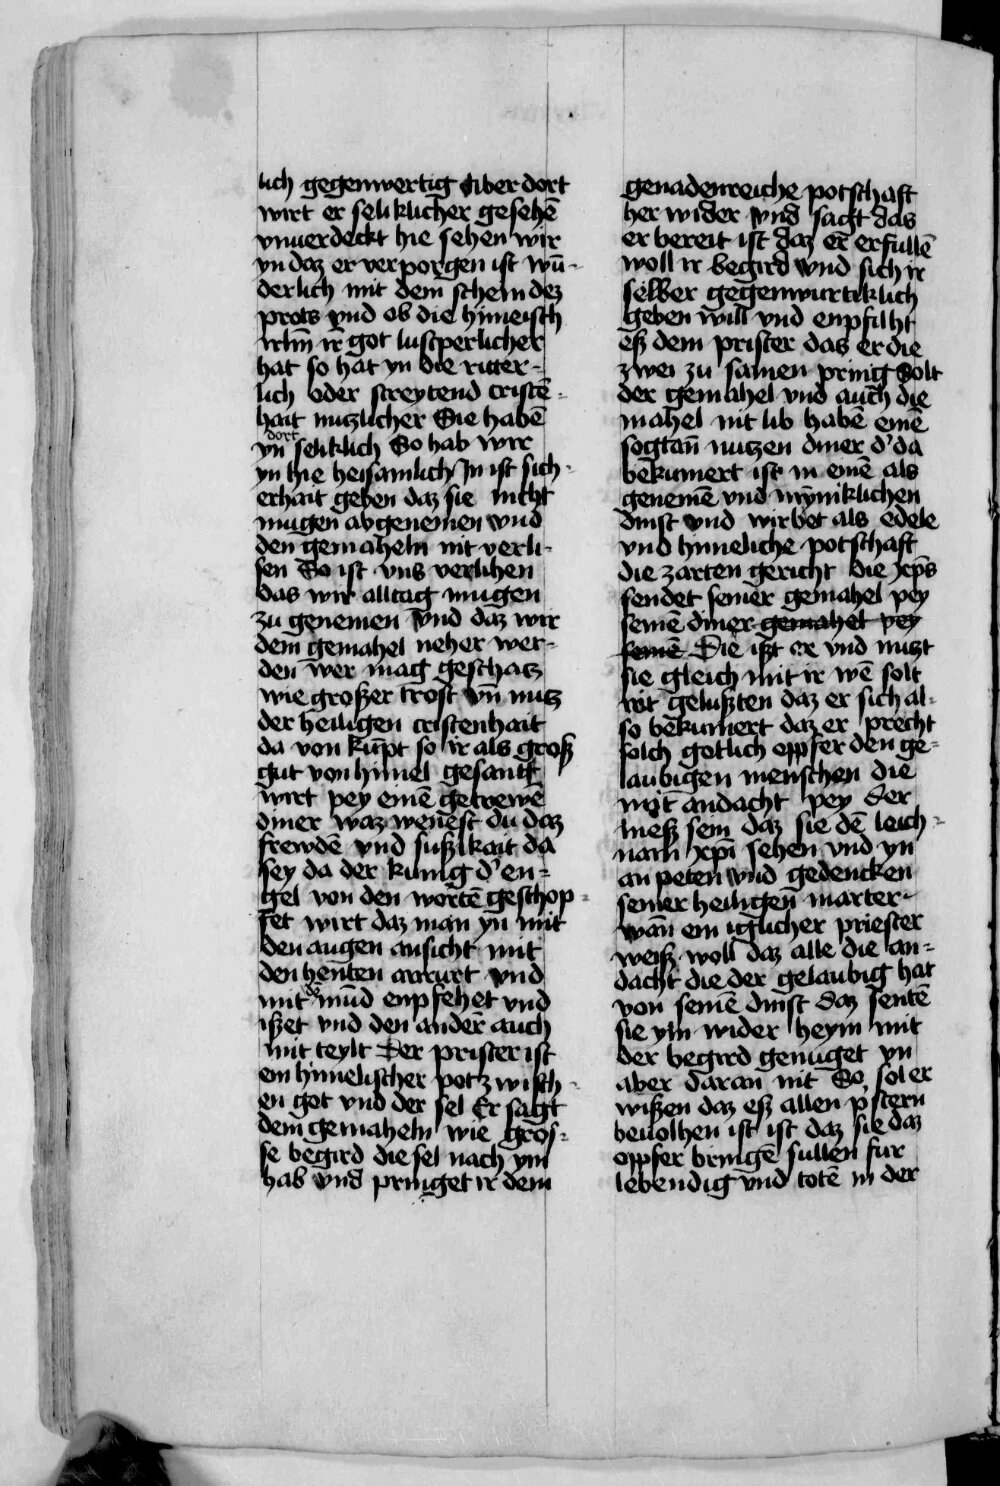 lich gegenwertig Aber dort
wirt er seliklicher gesehē
vnuerdeckt hie sehen wir
yn daz er verporgen ist wū-
derlich mit dem schein dez
prots vnd ob die himeisch
irlm̄ ir got lustperlicher
hat so hat yn die ritter-
lich oder streytend cristē-
hait nutzlicher Sie habē
yn dort seliklich So hab wir
yn hie heisamlich In ist sich-
erhait geben daz sie nicht
mugen abgenemen vnd
den gemaheln nit verli-
sen So ist vns verlihen
das wir alltag mugen
zu genemen vnd daz wir
dem gemahel neher wer-
den wer mag geschatz
wie großer trost vn̄ nutz
der heiligen cristenhait
da von kūpt so ir als groß
gut von himel gesantt
wirt pey einē getrewē
diner waz wenest du daz
frewdē vnd sußikait da
sey da der kunig d' en-
gel von den wortē geschop-
fet wirt daz man yn mit
den augen ansicht mit
den henten anrurt vnd
mit dē mūd enpfehet vnd
ißet vnd den andēr auch
mit teylt Der prister ist
ein himelischer potz wisch-
en got vnd der sel Er sagt
dem gemaheln wie gros-
se begird die sel nach ym
hab vnd pringet ir dem
genadenreiche potschaft
her wider vnd sagt das
er bereit ist daz er erfullē
woll ir begird vnd sich ir
selber gegenwurtiklich
geben will vnd enpfilht
eß dem prister das er die
zwei zu samen pring Solt
der gemahel vnd auch die
mahel nit lib habē einē
sogtan̄ nutzen diner d' da
bekumert ist in einē als
genemē vnd mÿniklichen
dinst vnd wirbet als edele
vnd himeliche potschaft
die zarten gericht die xp̄s
sendet seiner gemahel pey
seinē diner gemahel pey
seinē Die ißt er vnd nutzt
sie gleich mit ir wē solt
nit gelußten daz er sich al-
so bekumert daz er precht
solch gotlich oppfer den ge-
laubigen menschen die
mit andacht pey der
meß sein daz sie dē leich-
nam xp̄i sehen vnd yn
an peten vnd gedencken
seiner heiligen marter
wan̄ ein iglicher priester
weiß woll daz alle die an-
dacht die der gelaubig hat
von seinē dinst daz sentē
sie ym wider heym mit
der begird genuget yn
aber daran nit So sol er
wißen daz eß allen p̄stern
beuolhen ist ist daz sie daz
oppfer bringē sullen fur
lebendig vnd totē in der